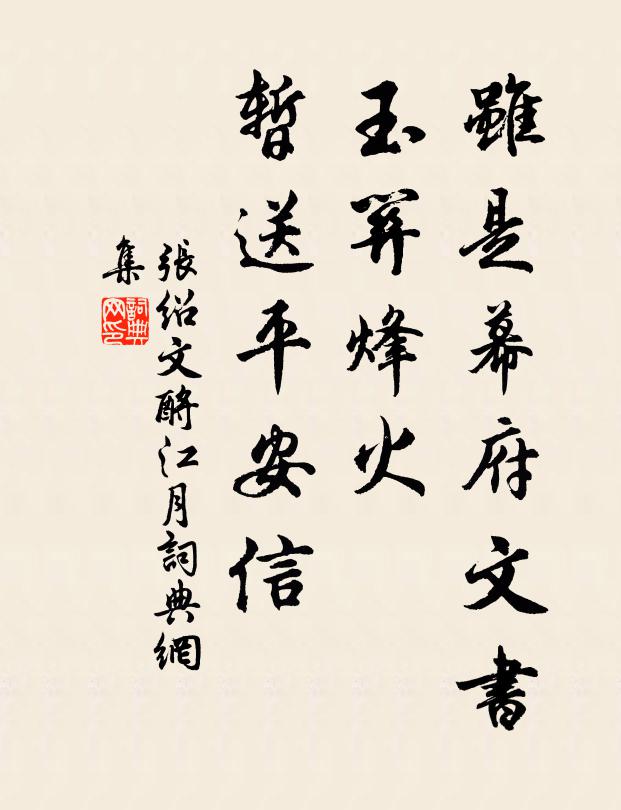 雖是幕府文書
玉關烽火
暫送平安信
張紹文酹江月詞典網
集
詞典
网印